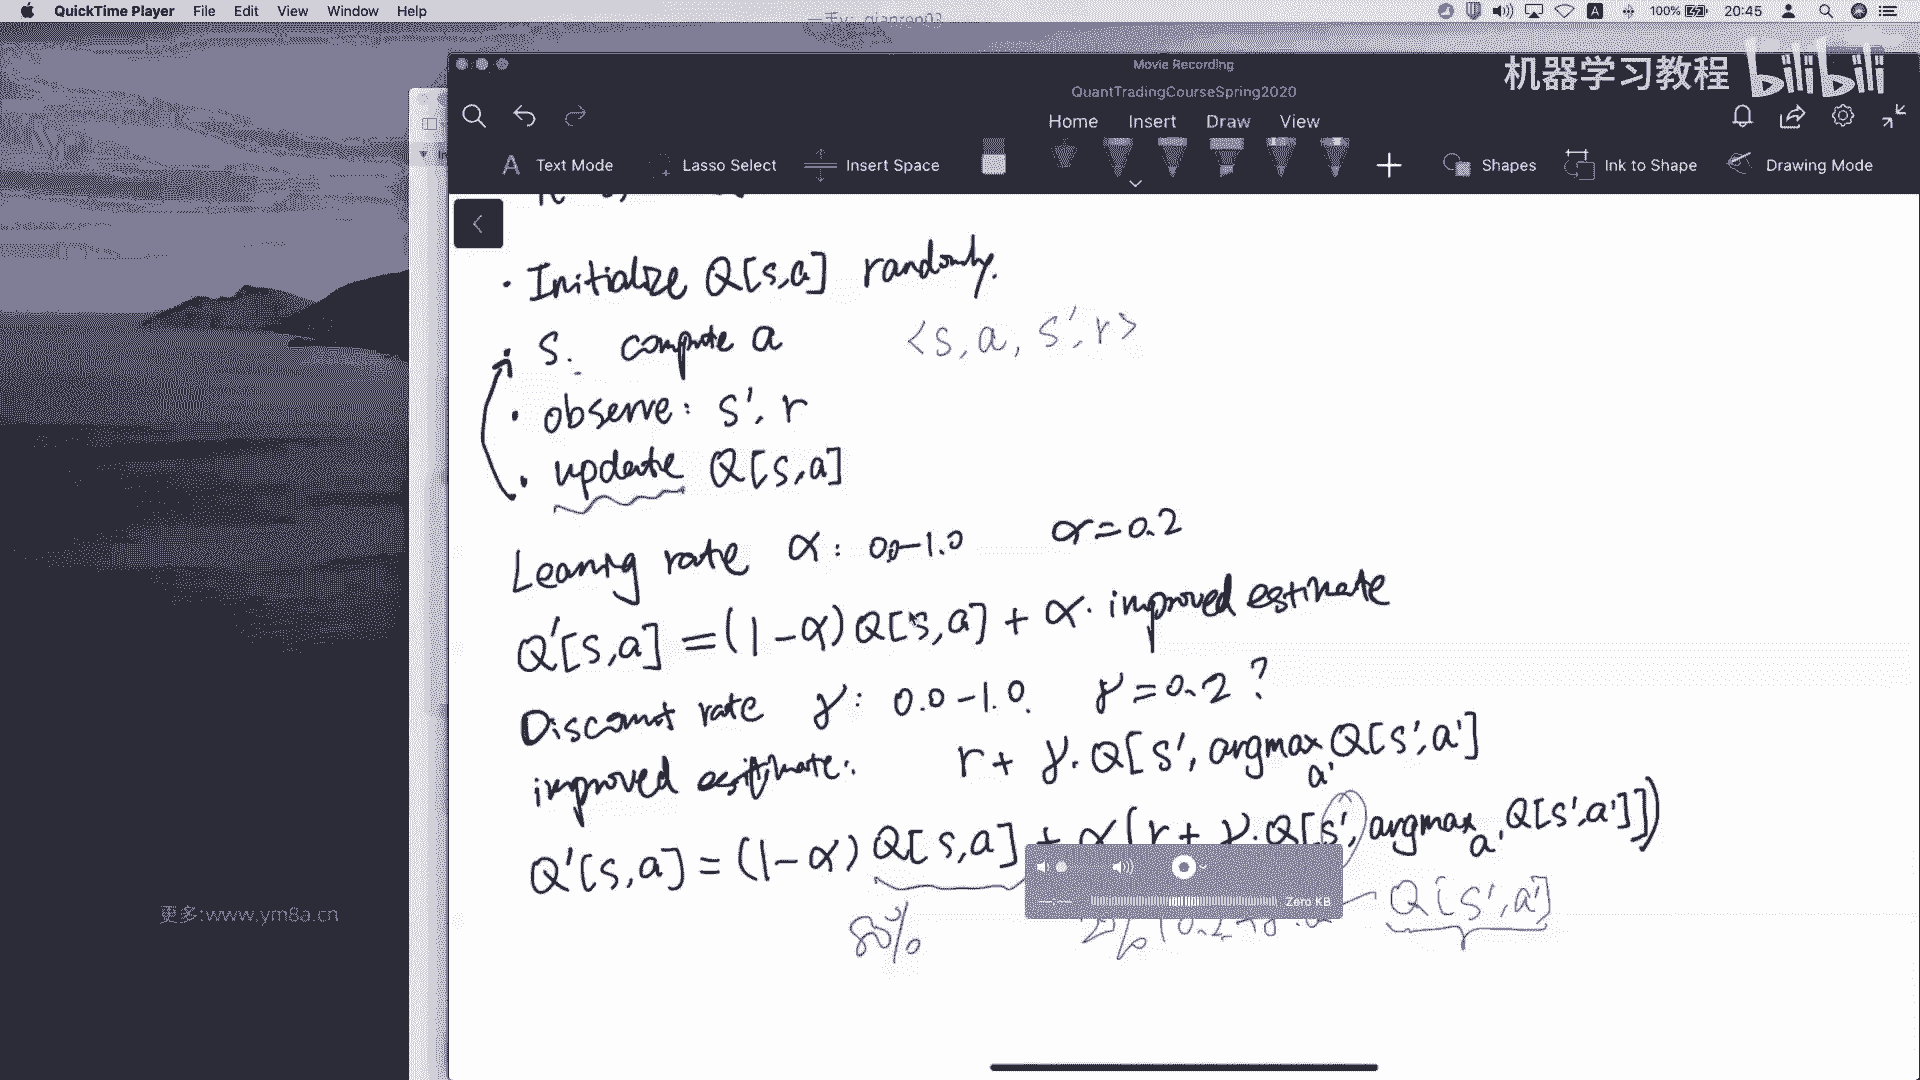 QuickTime Player File Edit View Window Help 100% 20:45
Movie Recording
机器学习教程 bilibili
QuantTradingCourseSpring2020
Home Insert Draw View
Text Mode Lasso Select Insert Space Shapes Ink to Shape Drawing Mode
· Initialize Q[s,a] randomly.
· S. compute a <s, a, s', r>
· observe: s', r
· update Q[s,a]
Learning rate α: 0.0-1.0 α=0.2
Q'[s,a] = (1-α) Q[s,a] + α· improved estimate
Discount rate γ: 0.0-1.0. γ=0.2 ?
improved estimate: r + γ. Q[s', argmax a' Q[s',a']
Q'[s,a] = (1-α) Q[s,a] + α(r + γ.Q[s', argmax a' Q[s',a']])
Zero KB
Q[s',a']
80%
更多:www.ym8a.cn